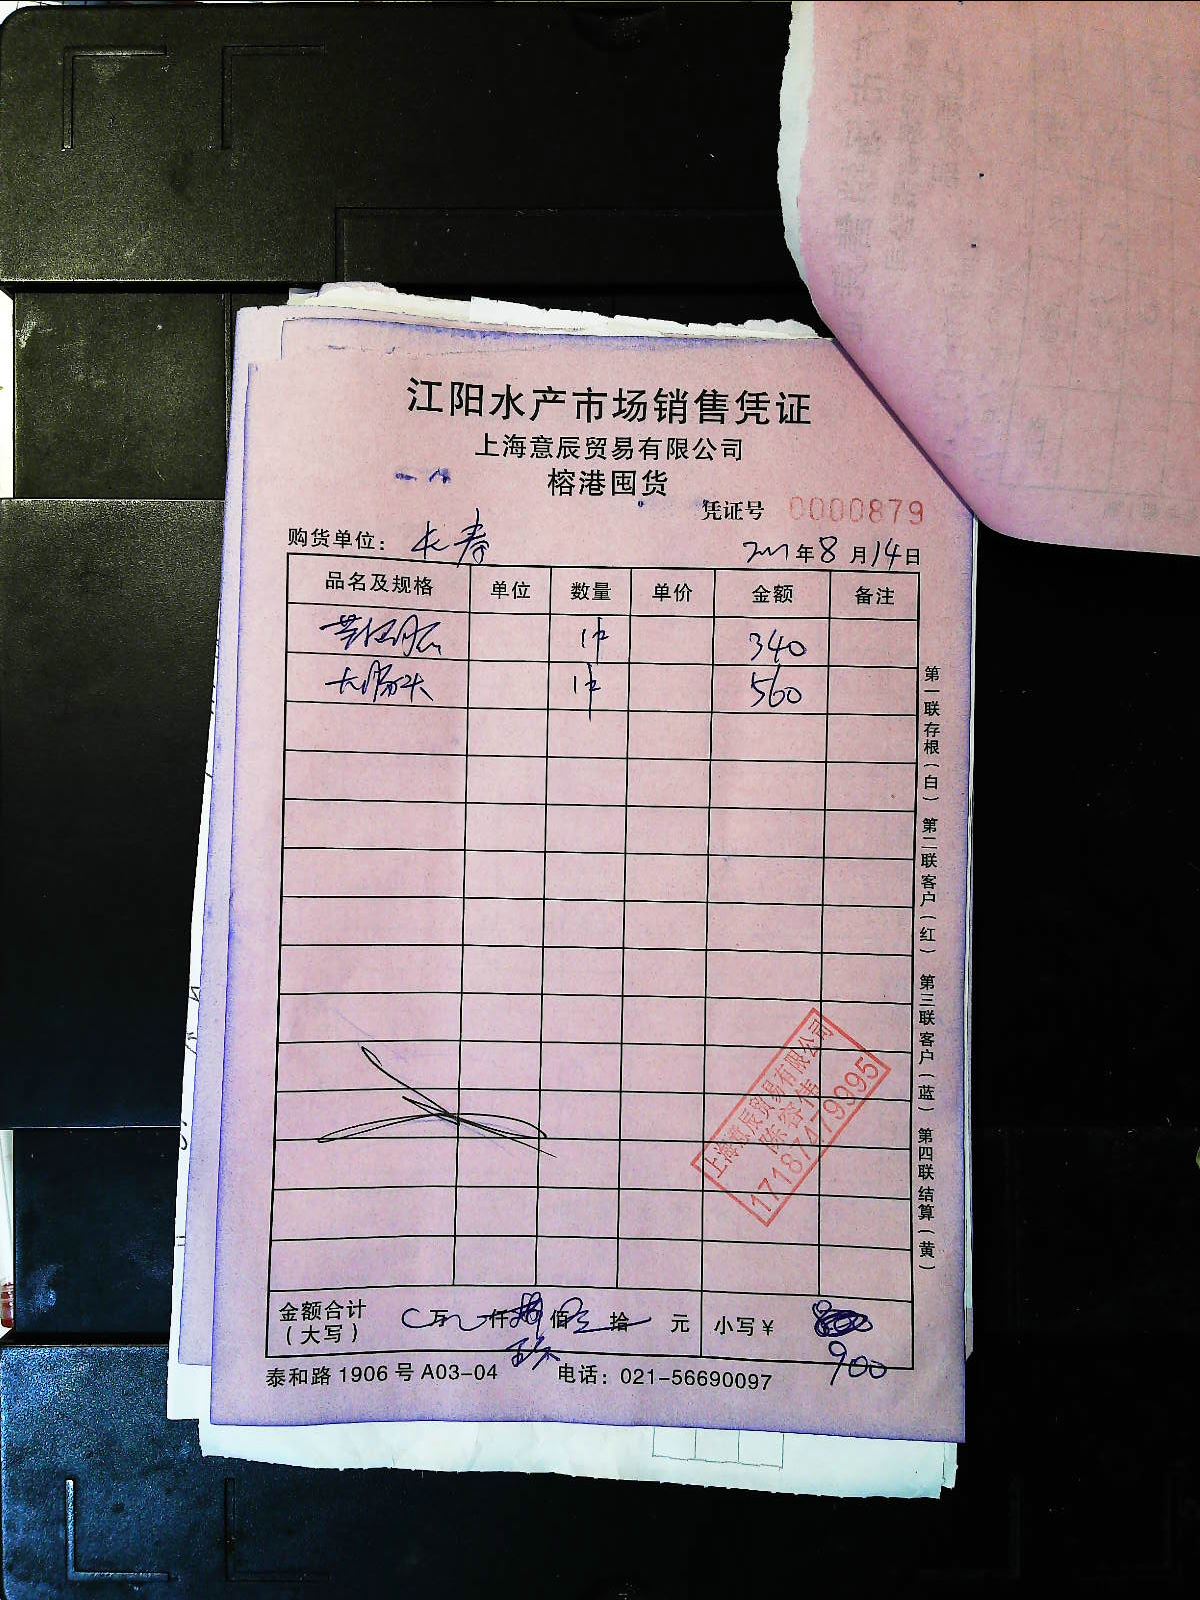 江阳水产市场销售凭证
上海意辰贸易有限公司
榕港囤货
凭证号 0000879
购货单位：长寿
年8月14日
品名及规格 单位 数量 单价 金额 备注
1件 340
大肠头 1件 560
第一联存根（白） 第二联客户（红） 第三联客户（蓝） 第四联结算（黄）
上海意辰贸易有限公司
陈容伟
17187479995
金额合计（大写） 万 仟 佰 拾 元 小写￥
900
泰和路1906号A03-04 电话：021-56690097